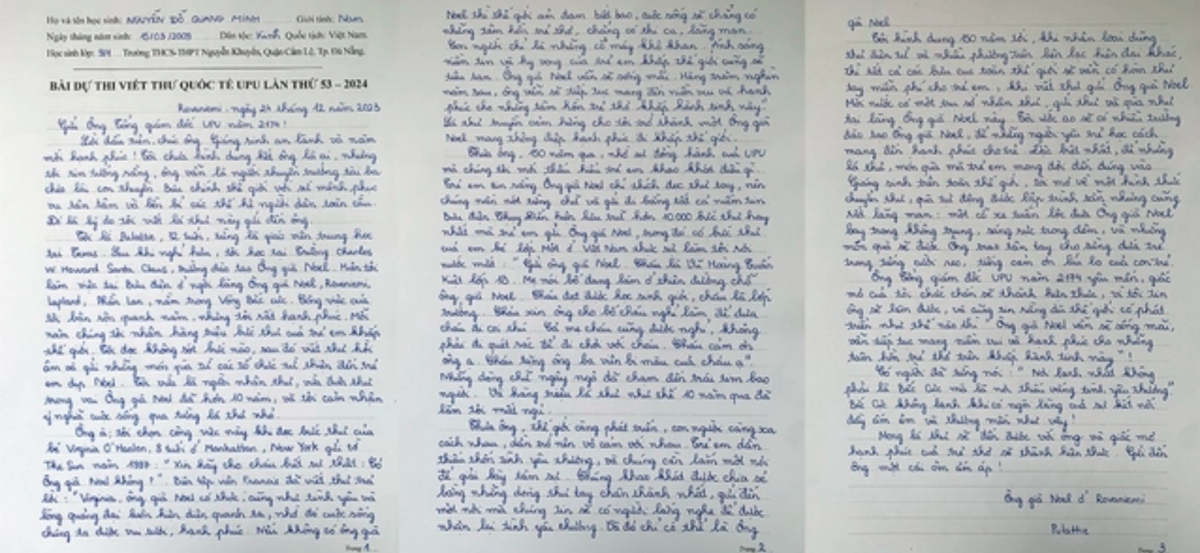 Họ và tên học sinh: NGUYỄN ĐỖ QUANG MINH Giới tính: Nam
Ngày tháng năm sinh: 15/03/2009 Dân tộc: Kinh Quốc tịch: Việt Nam.
Học sinh lớp: 9/4 Trường THCS-THPT Nguyễn Khuyến, Quận Cẩm Lệ, Tp. Đà Nẵng.
BÀI DỰ THI VIẾT THƯ QUỐC TẾ UPU LẦN THỨ 53 – 2024
Rovaniemi, ngày 24 tháng 12 năm 2023
Gửi Ông Tổng giám đốc UPU năm 2174!
Lời đầu tiên, chúc ông Giáng sinh an lành và năm
mới hạnh phúc! Tôi chưa hình dung hết ông là ai, nhưng
tôi tin tưởng rằng, ông vẫn là người thuyền trưởng tài ba
chèo lái con thuyền Bưu chính thế giới với sứ mệnh phục
vụ tận tâm và bền bỉ các thế hệ người dân toàn cầu.
Đó là lý do tôi viết lá thư này gửi đến ông.
Tôi là Pulattie, 62 tuổi, từng là giáo viên trung học
tại Texas. Sau khi nghỉ hưu, tôi học tại Trường Charles
W. Howard Santa Claus, trường đào tạo Ông già Noel. Hiện tôi
làm việc tại Bưu điện ở ngôi làng Ông già Noel, Rovaniemi,
Lapland, Phần Lan, nằm trong Vòng Bắc cực. Công việc của
tôi bận rộn quanh năm, nhưng tôi rất hạnh phúc. Mỗi
năm chúng tôi nhận hàng triệu bức thư của trẻ em khắp
thế giới. Tôi đọc không sót bức nào, sau đó viết thư hồi
âm và gửi những món quà từ các tổ chức từ thiện đến trẻ
em dịp Noel. Tôi vừa là người nhận thư, vừa đưa thư
trong vai Ông già Noel đã hơn 10 năm, và tôi cảm nhận
ý nghĩa cuộc sống qua từng lá thư nhỏ.
Ông ạ, tôi chọn công việc này khi đọc bức thư của
bé Virginia O'Hanlon, 8 tuổi ở Manhattan, New York gửi tờ
The Sun năm 1897: "Xin hãy cho cháu biết sự thật: Có
Ông già Noel không?". Biên tập viên Francis đã viết thư trả
lời: "Virginia, ông già Noel có thực, cũng như tình yêu và
lòng quảng đại luôn hiện diện quanh ta, nhờ đó cuộc sống
chúng ta được vui tươi, hạnh phúc. Nếu không có ông già
Trang 1
Noel thì thế giới ảm đạm biết bao, cuộc sống sẽ chẳng có
những tâm hồn trẻ thơ, chẳng có thi ca, lãng mạn.
Con người chỉ là những cỗ máy khô khan. Ánh sáng
niềm tin và hy vọng của trẻ em khắp thế giới cũng sẽ
tiêu tan. Ông già Noel vẫn sống mãi. Hàng trăm nghìn
năm sau, ông vẫn sẽ tiếp tục mang đến niềm vui và hạnh
phúc cho những tâm hồn trẻ thơ khắp hành tinh này".
Lá thư truyền cảm hứng cho tôi trở thành một Ông già
Noel mang thông điệp hạnh phúc đi khắp thế giới.
Thưa ông, 150 năm qua, nhờ sự đồng hành của UPU
mà chúng tôi mới thấu hiểu trẻ em khao khát điều gì.
Trẻ em tin rằng Ông già Noel chỉ thích đọc thư tay, nên
chúng nắn nót từng chữ và gửi đi bằng tất cả niềm tin.
Bưu điện Thụy Điển hiện lưu trữ hơn 10.000 bức thư hay
nhất mà trẻ em gửi Ông già Noel, trong đó có bức thư
của em bé lớp Một ở Việt Nam thực sự làm tôi rơi
nước mắt: "Gửi ông già Noel. Cháu là Vũ Hoàng Tuấn
Kiệt lớp 1B. Mẹ nói bố đang làm ở thiên đường chỗ
ông già Noel. Cháu đạt được học sinh giỏi, cháu là lớp
trưởng. Cháu xin ông cho bố cháu nghỉ làm, để đưa
cháu đi coi thú. Có mẹ cháu cũng được nghỉ, không
phải đi quét rác để đi chơi với cháu. Cháu cảm ơn
ông ạ. Cháu tặng ông ba viên bi màu của cháu ạ".
Những dòng chữ ngây ngô đã chạm đến trái tim bao
người. Và hàng triệu lá thư như thế 10 năm qua đã
làm tôi mất ngủ.
Thưa ông, thế giới càng phát triển, con người càng xa
cách nhau, dần trở nên vô cảm với nhau. Trẻ em dần
thiếu thốn tình yêu thương, và chúng cần lắm một nơi
để giải bày tâm sự. Chúng khao khát được chia sẻ
bằng những dòng thư tay chân thành nhất, gửi đến
một nơi mà chúng tin sẽ có người lắng nghe để được
nhận lại tình yêu thương. Và đó chỉ có thể là Ông
Trang 2
già Noel.
Tôi hình dung 150 năm tới, khi nhân loại dùng
thư điện tử và nhiều phương tiện liên lạc hiện đại khác,
thì tất cả các bưu cục toàn thế giới sẽ vẫn có hòm thư
tay miễn phí cho trẻ em, khi viết thư gửi Ông già Noel.
Mỗi nước có một trụ sở nhận thư, gửi thư và quà như
tại làng Ông già Noel này. Tôi ước ao sẽ có nhiều trường
đào tạo Ông già Noel, để những người yêu trẻ học cách
mang đến hạnh phúc cho trẻ. Đặc biệt nhất, để những
lá thư, món quà mà trẻ em mong đợi đến đúng vào
Giáng sinh trên toàn thế giới, tôi mơ về một hình thức
chuyển thư, quà tự động được lập trình sẵn nhưng cũng
rất lãng mạn: một cỗ xe tuần lộc đưa Ông già Noel
bay trong không trung, sáng rực trong đêm, và những
món quà sẽ được Ông trao tận tay cho từng đứa trẻ
trong tiếng cười reo, tiếng cảm ơn líu lo của con trẻ.
Ông Tổng giám đốc UPU năm 2174 yêu mến, giấc
mơ của tôi chắc chắn sẽ thành hiện thực, vì tôi tin
ông sẽ làm được, và cũng tin rằng dù thế giới có phát
triển như thế nào thì "Ông già Noel vẫn sẽ sống mãi,
vẫn tiếp tục mang niềm vui và hạnh phúc cho những
tâm hồn trẻ thơ trên khắp hành tinh này"!
Có người đã từng nói: "Nơi lạnh nhất không
phải là Bắc Cực mà là nơi thiếu vắng tình yêu thương".
Bắc Cực không lạnh khi có ngôi làng của sự kết nối
đầy ấm êm và thương mến như vậy!
Mong lá thư sẽ đến được với ông và giấc mơ
hạnh phúc của trẻ thơ sẽ thành hiện thực. Gửi đến
Ông một cái ôm ấm áp!
Ông già Noel ở Rovaniemi
Pulattie
Trang 3